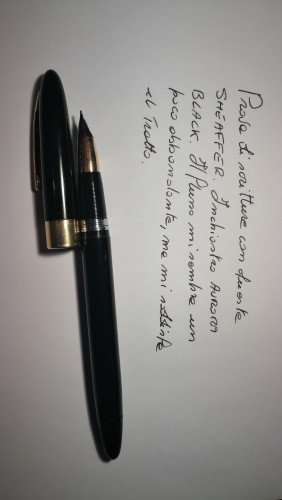 Prova di scrittura con questa
SHEAFFER. Inchiostro Aurora
BLACK. Il flusso mi sembra un
poco abbondante, ma mi soddisfa
il tratto.